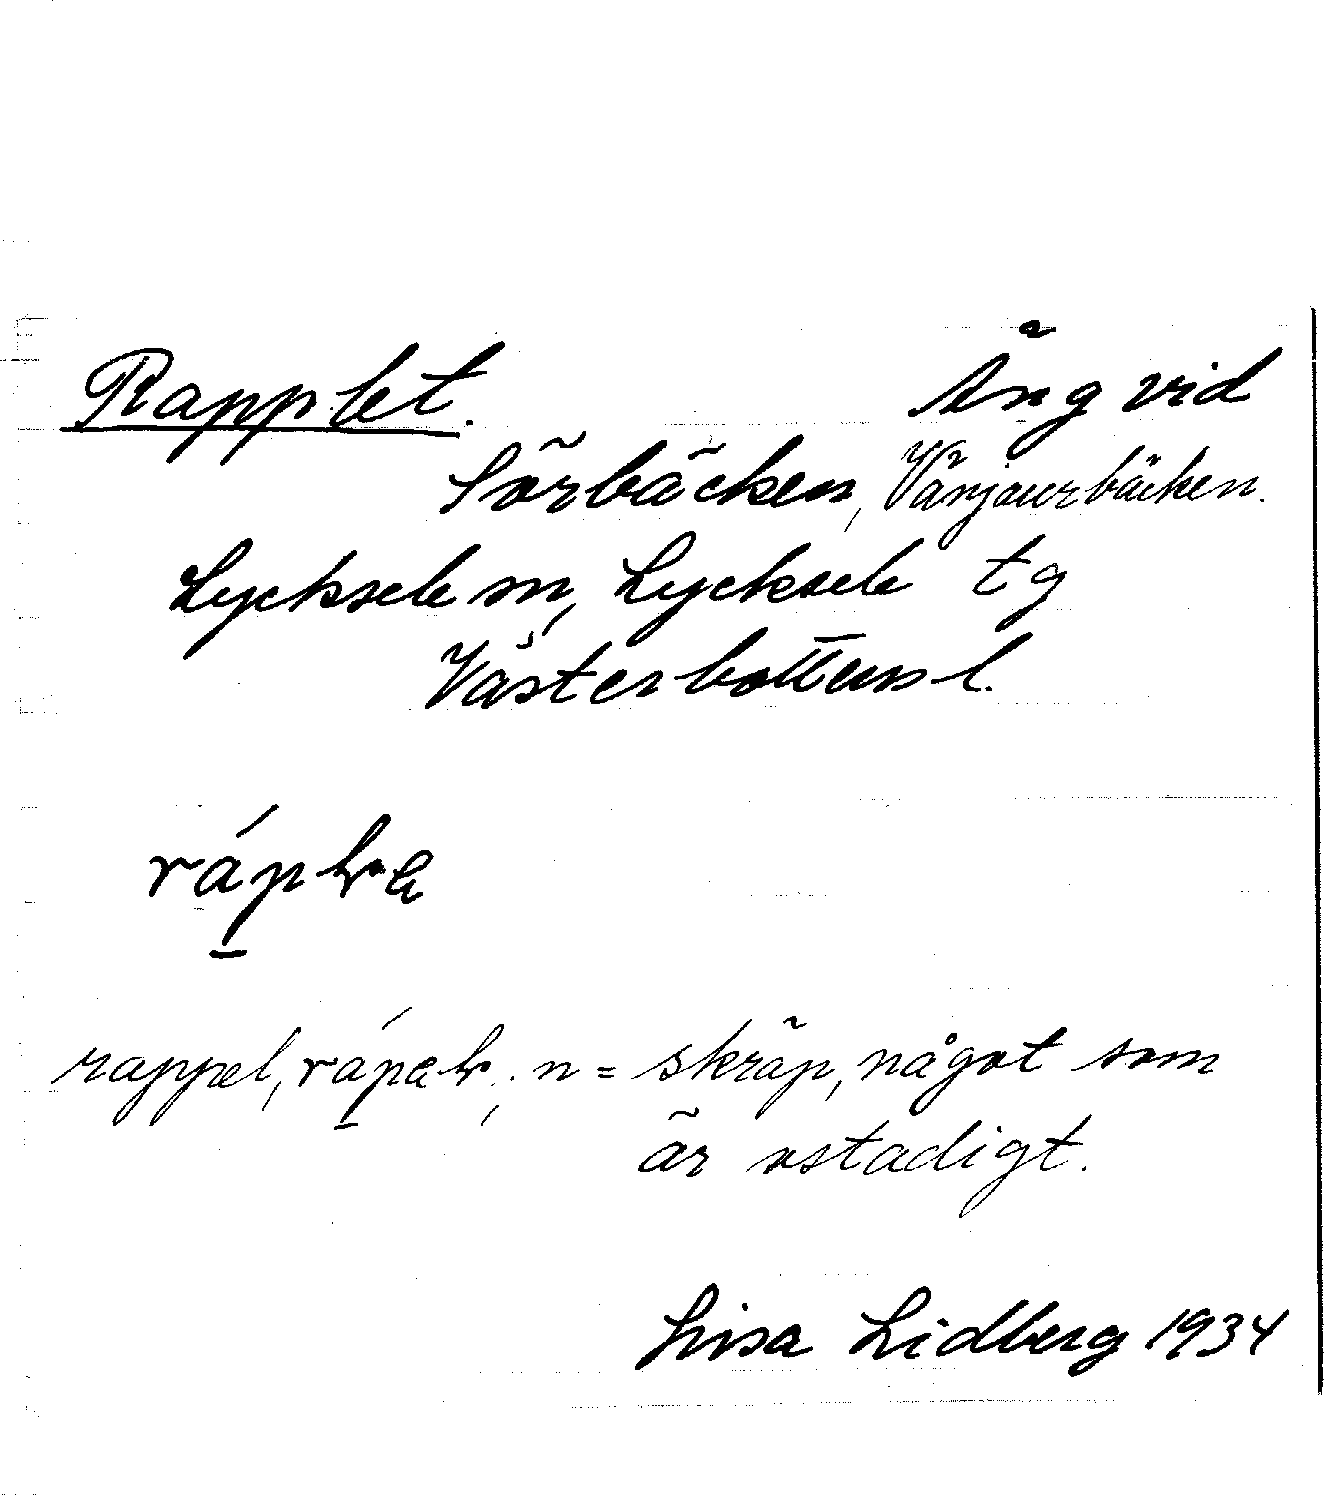 Rapplet. Äng vid
Sörbäcken, Vänjaurbäcken.
Lycksele sn, Lycksele tg
Västerbottens l.
rappel, n = skräp, något som
är ostadigt.
Lisa Lidberg 1934